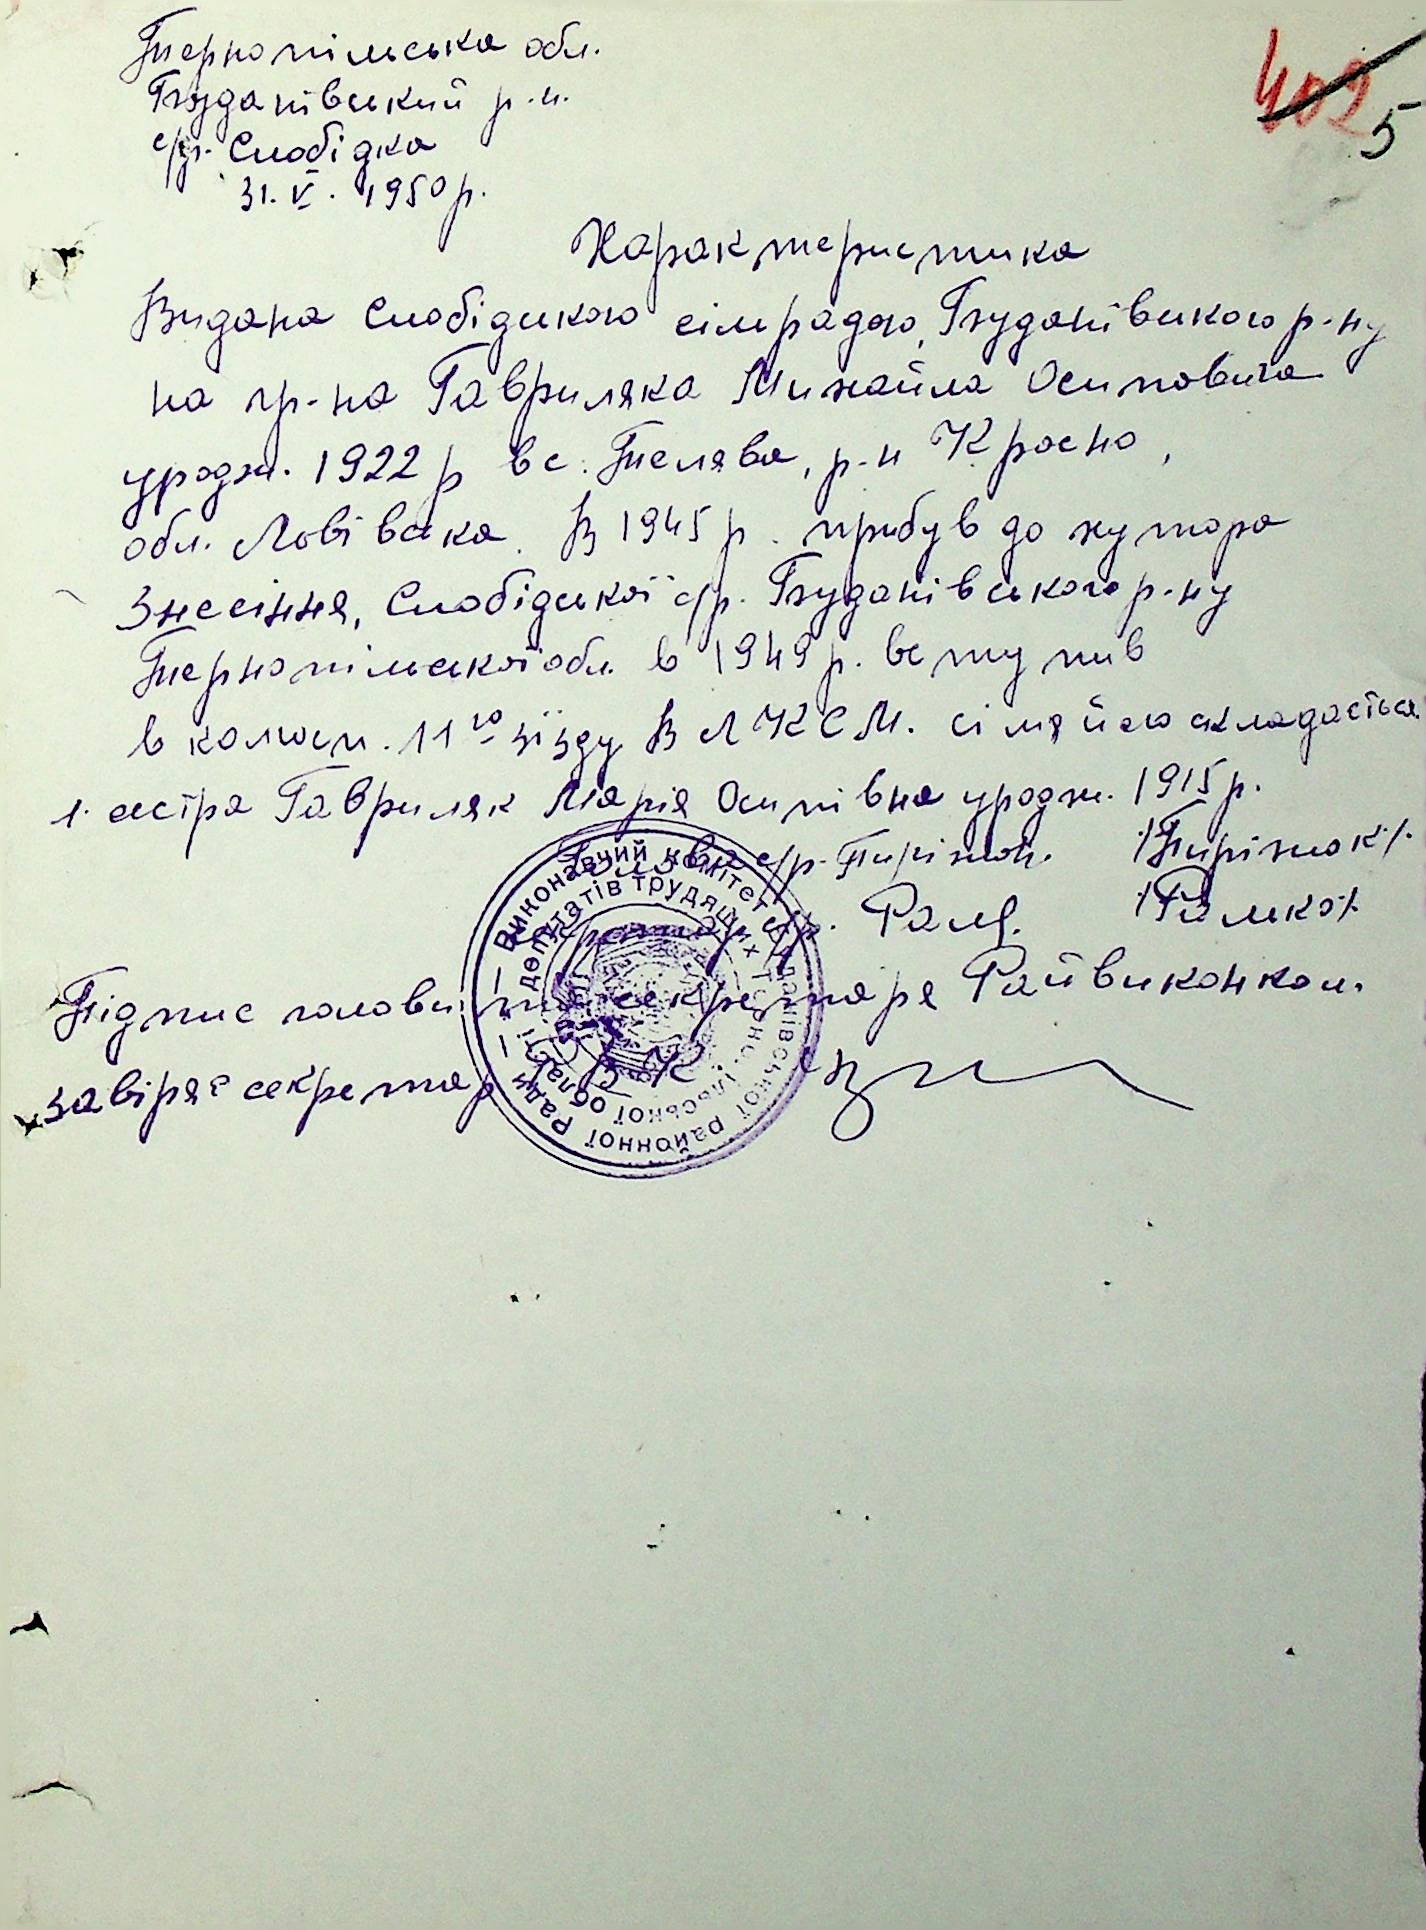 Тернопільська обл.
Буданівський р-н.
с/р. Слобідка
31. V. 1950 р.
402 5
Характеристика
Видана Слобідською сілрадою, Буданівского р-ну
на гр-на Гавриляка Михайла Осиповича
уродж. 1922 р в с. Пелява, р-н Красно,
обл. Львівська. В 1945 р. прибув до хутора
Знесіння, Слобідської с/р. Буданівського р-ну
Тернопільської обл. в 1949 р. вступив
в колгосп. 11го зїзду ВЛКСМ. сімя його складається
1. сестра Гавриляк Марія Осипівна уродж. 1915 р.
Голова с/р. Пиріжок. /Пиріжок/.
Секретар с/р. Ральк. /Ралько/.
Підпис голови та секретаря Райвиконком.
завіряє секретар РВК
Виконавчий комітет Буданівської районної Ради
депутатів трудящих Тернопільської області